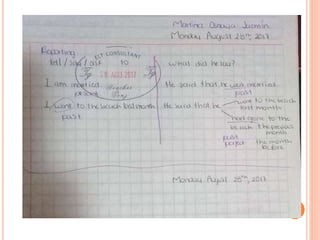 Martina Amaya Jazmín
Monday August 28th, 2017
Reporting
tell / say / ask to
What did he say?
ELT CONSULTANT
28 AGO 2017
I am married
present
He said that he was married
past
I went to the beach last month
past
He said that he
went to the beach
last month
had gone to the
beach the previous
month
past
perfect
the month
before
Monday August 28th, 2017